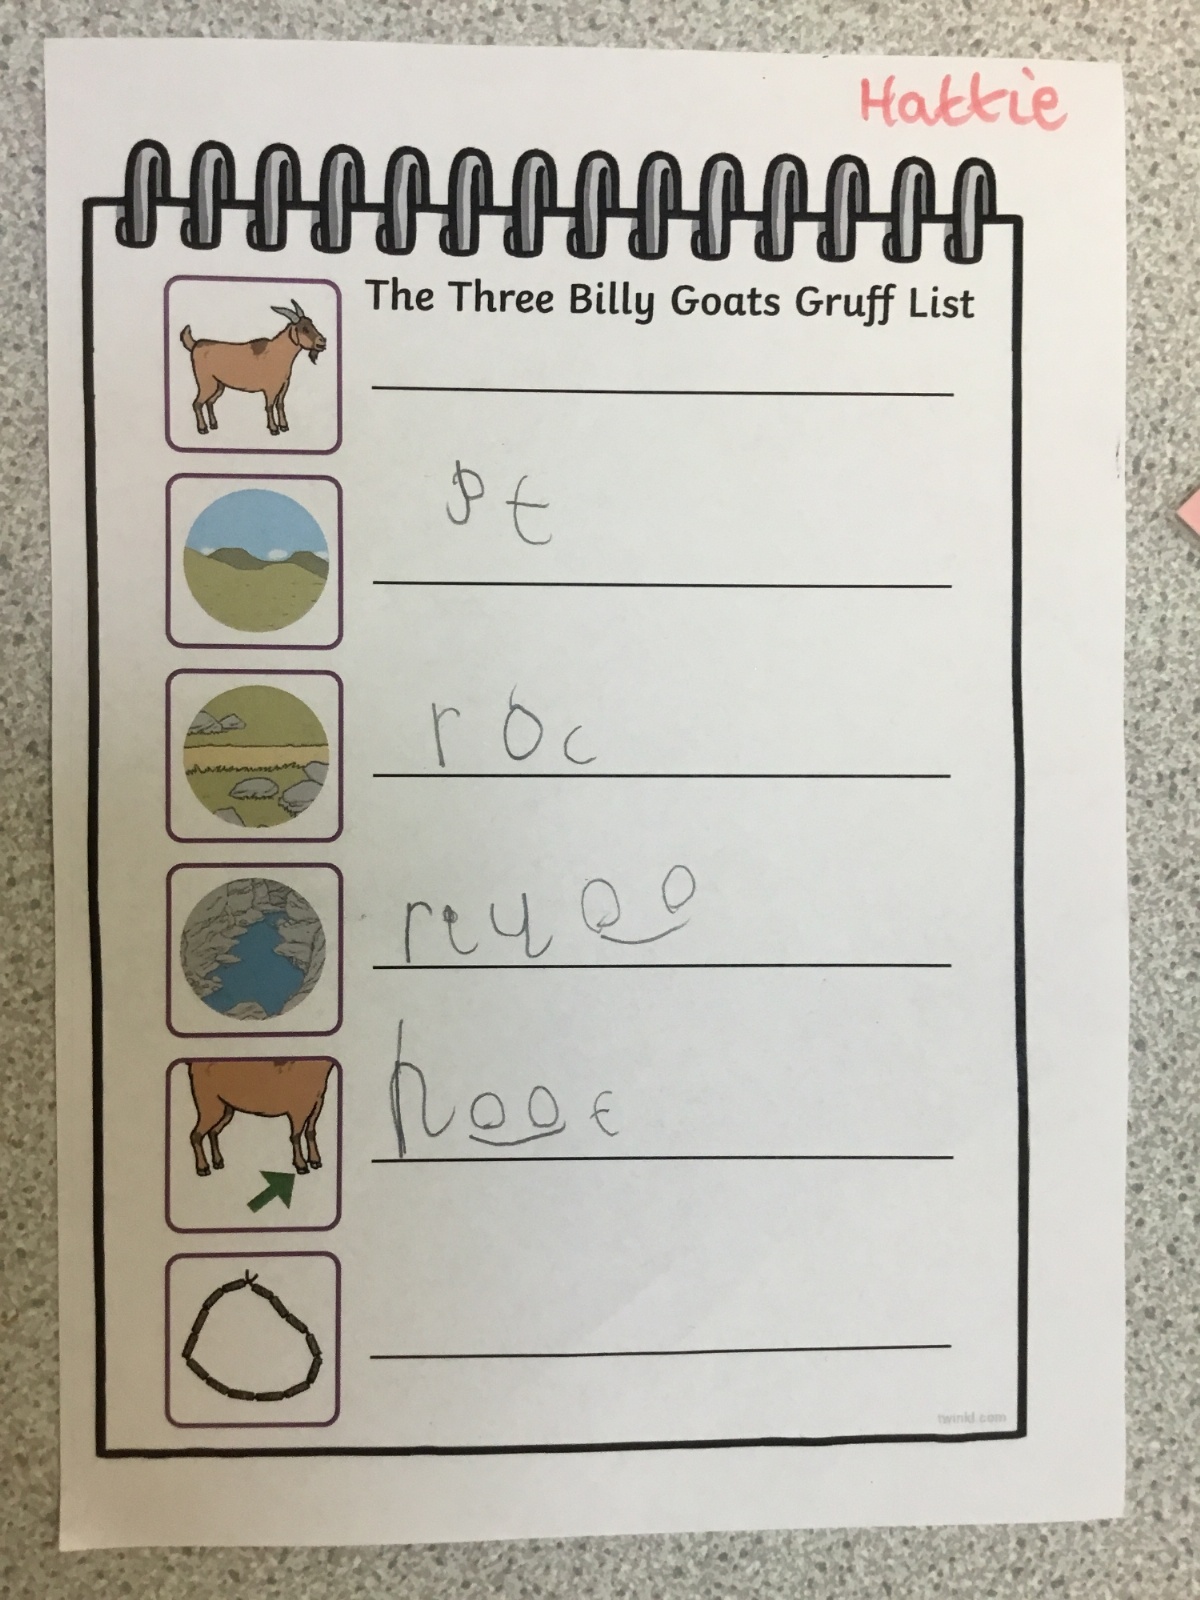 Hattie
The Three Billy Goats Gruff List
pt
roc
hoot
twinkl.com